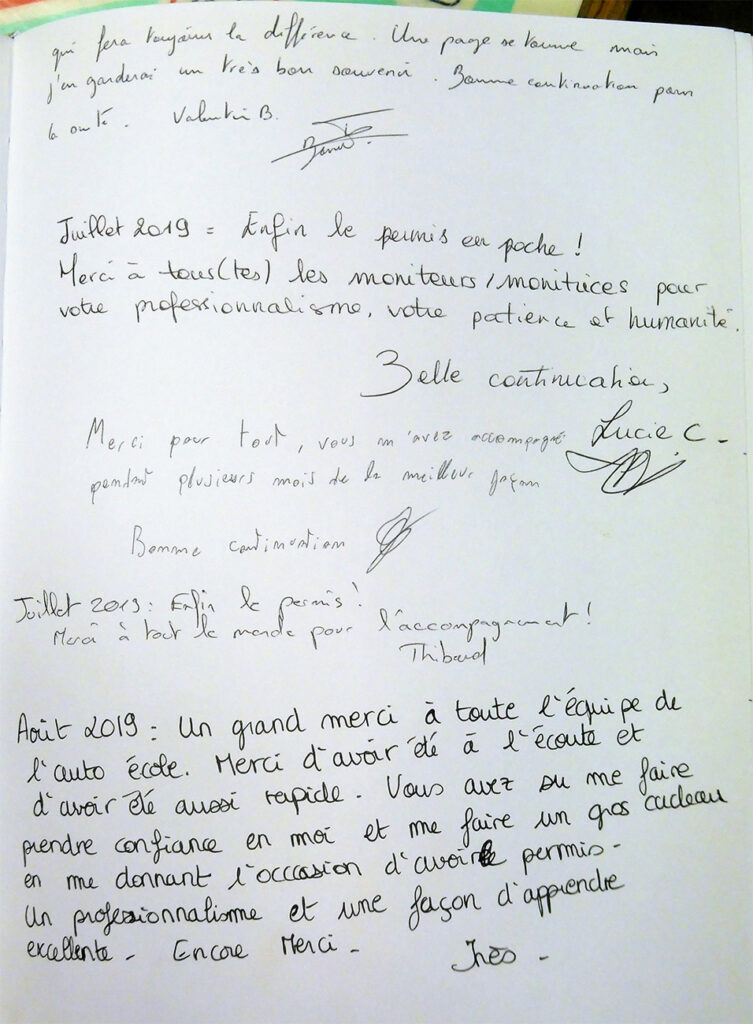 qui fera toujours la différence. Une page se tourne mais
j'en garderai un très bon souvenir. Bonne continuation pour
la suite. Valentin B.
Juillet 2019 = Enfin le permis en poche !
Merci à tous(tes) les moniteurs/monitrices pour
votre professionnalisme, votre patience et humanité.
Belle continuation,
Lucie C -
Merci pour tout, vous m'avez accompagné
pendant plusieurs mois de la meilleur façon
Bonne continuation
Juillet 2019 : Enfin le permis !
Merci à tout le monde pour l'accompagnement !
Thibaud
Août 2019 : Un grand merci à toute l'équipe de
l'auto école. Merci d'avoir été à l'écoute et
d'avoir été aussi rapide. Vous avez su me faire
prendre confiance en moi et me faire un gros cadeau
en me donnant l'occcasion d'avoir le permis -
Un professionnalisme et une façon d'apprendre
excellente - Encore Merci - Inès -